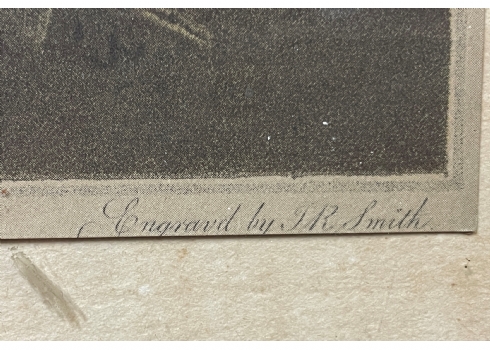 Engrav'd by J.R. Smith.